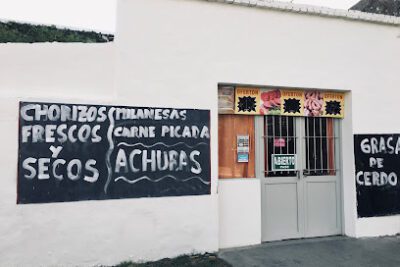 CHORIZOS
FRESCOS
Y
SECOS
MILANESAS
CARNE PICADA
ACHURAS
OFERTON
OFERTON
ABIERTO
GRASA
DE
CERDO